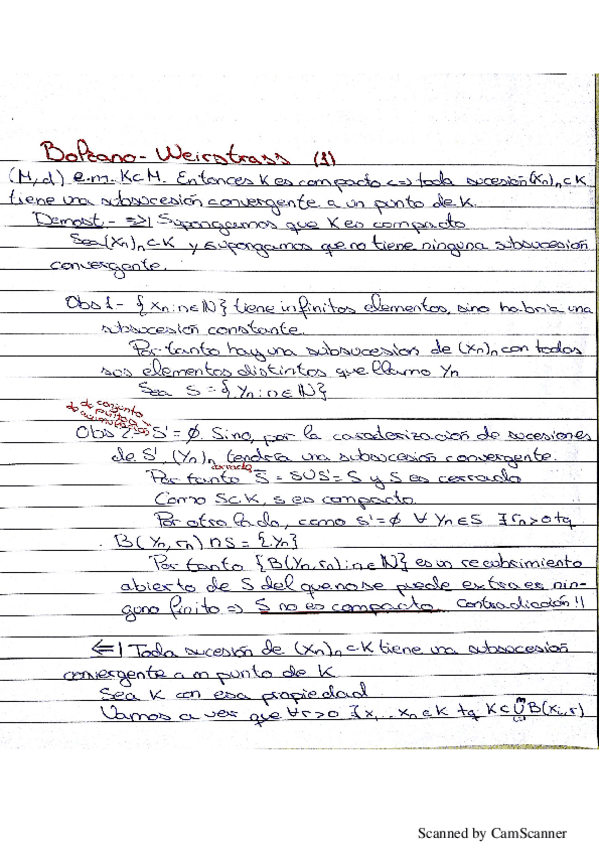 Bolzano-Weirstrass (1)
(M,d) e.m. K⊂M. Entonces K es compacto <=> toda sucesión (xn)n ⊂ K
tiene una subsucesión convergente a un punto de K.
Demost.- =>| Supongamos que K es compacto
Sea (xn)n ⊂ K y supongamos que no tiene ninguna subsucesión
convergente.
Obs 1- {xn : n∈ℕ} tiene infinitos elementos, sino habría una
subsucesión constante.
Por tanto hay una subsucesion de (xn)n con todos
sus elementos distintos que llamo yn
Sea S = {yn : n∈ℕ}
de conjunto
de puntos
de acumulación
Obs 2.- S' = ∅. Sino, por la caracterización de sucesiones
de S', (yn)n tendría una subsucesión convergente.
Por tanto S̅ = S∪S' = S y S es cerrado
Como S⊂K, S es compacto.
Por otro lado, como S'=∅ ∀ yn∈S ∃ rn>0 tq
B(yn, rn) ∩ S = {yn}
Por tanto {B(yn, rn) : n∈ℕ} es un recubrimiento
abierto de S del que no se puede extraer nin-
guno finito => S no es compacto Contradicción!!
<=| Toda sucesión de (xn)n ⊂ K tiene una subsucesión
convergente a un punto de K
Sea K con esa propiedad
Vamos a ver que ∀r>0 ∃ x1 ... xn ∈ K tq K ⊂ ∪ B(xi, r)
Scanned by CamScanner